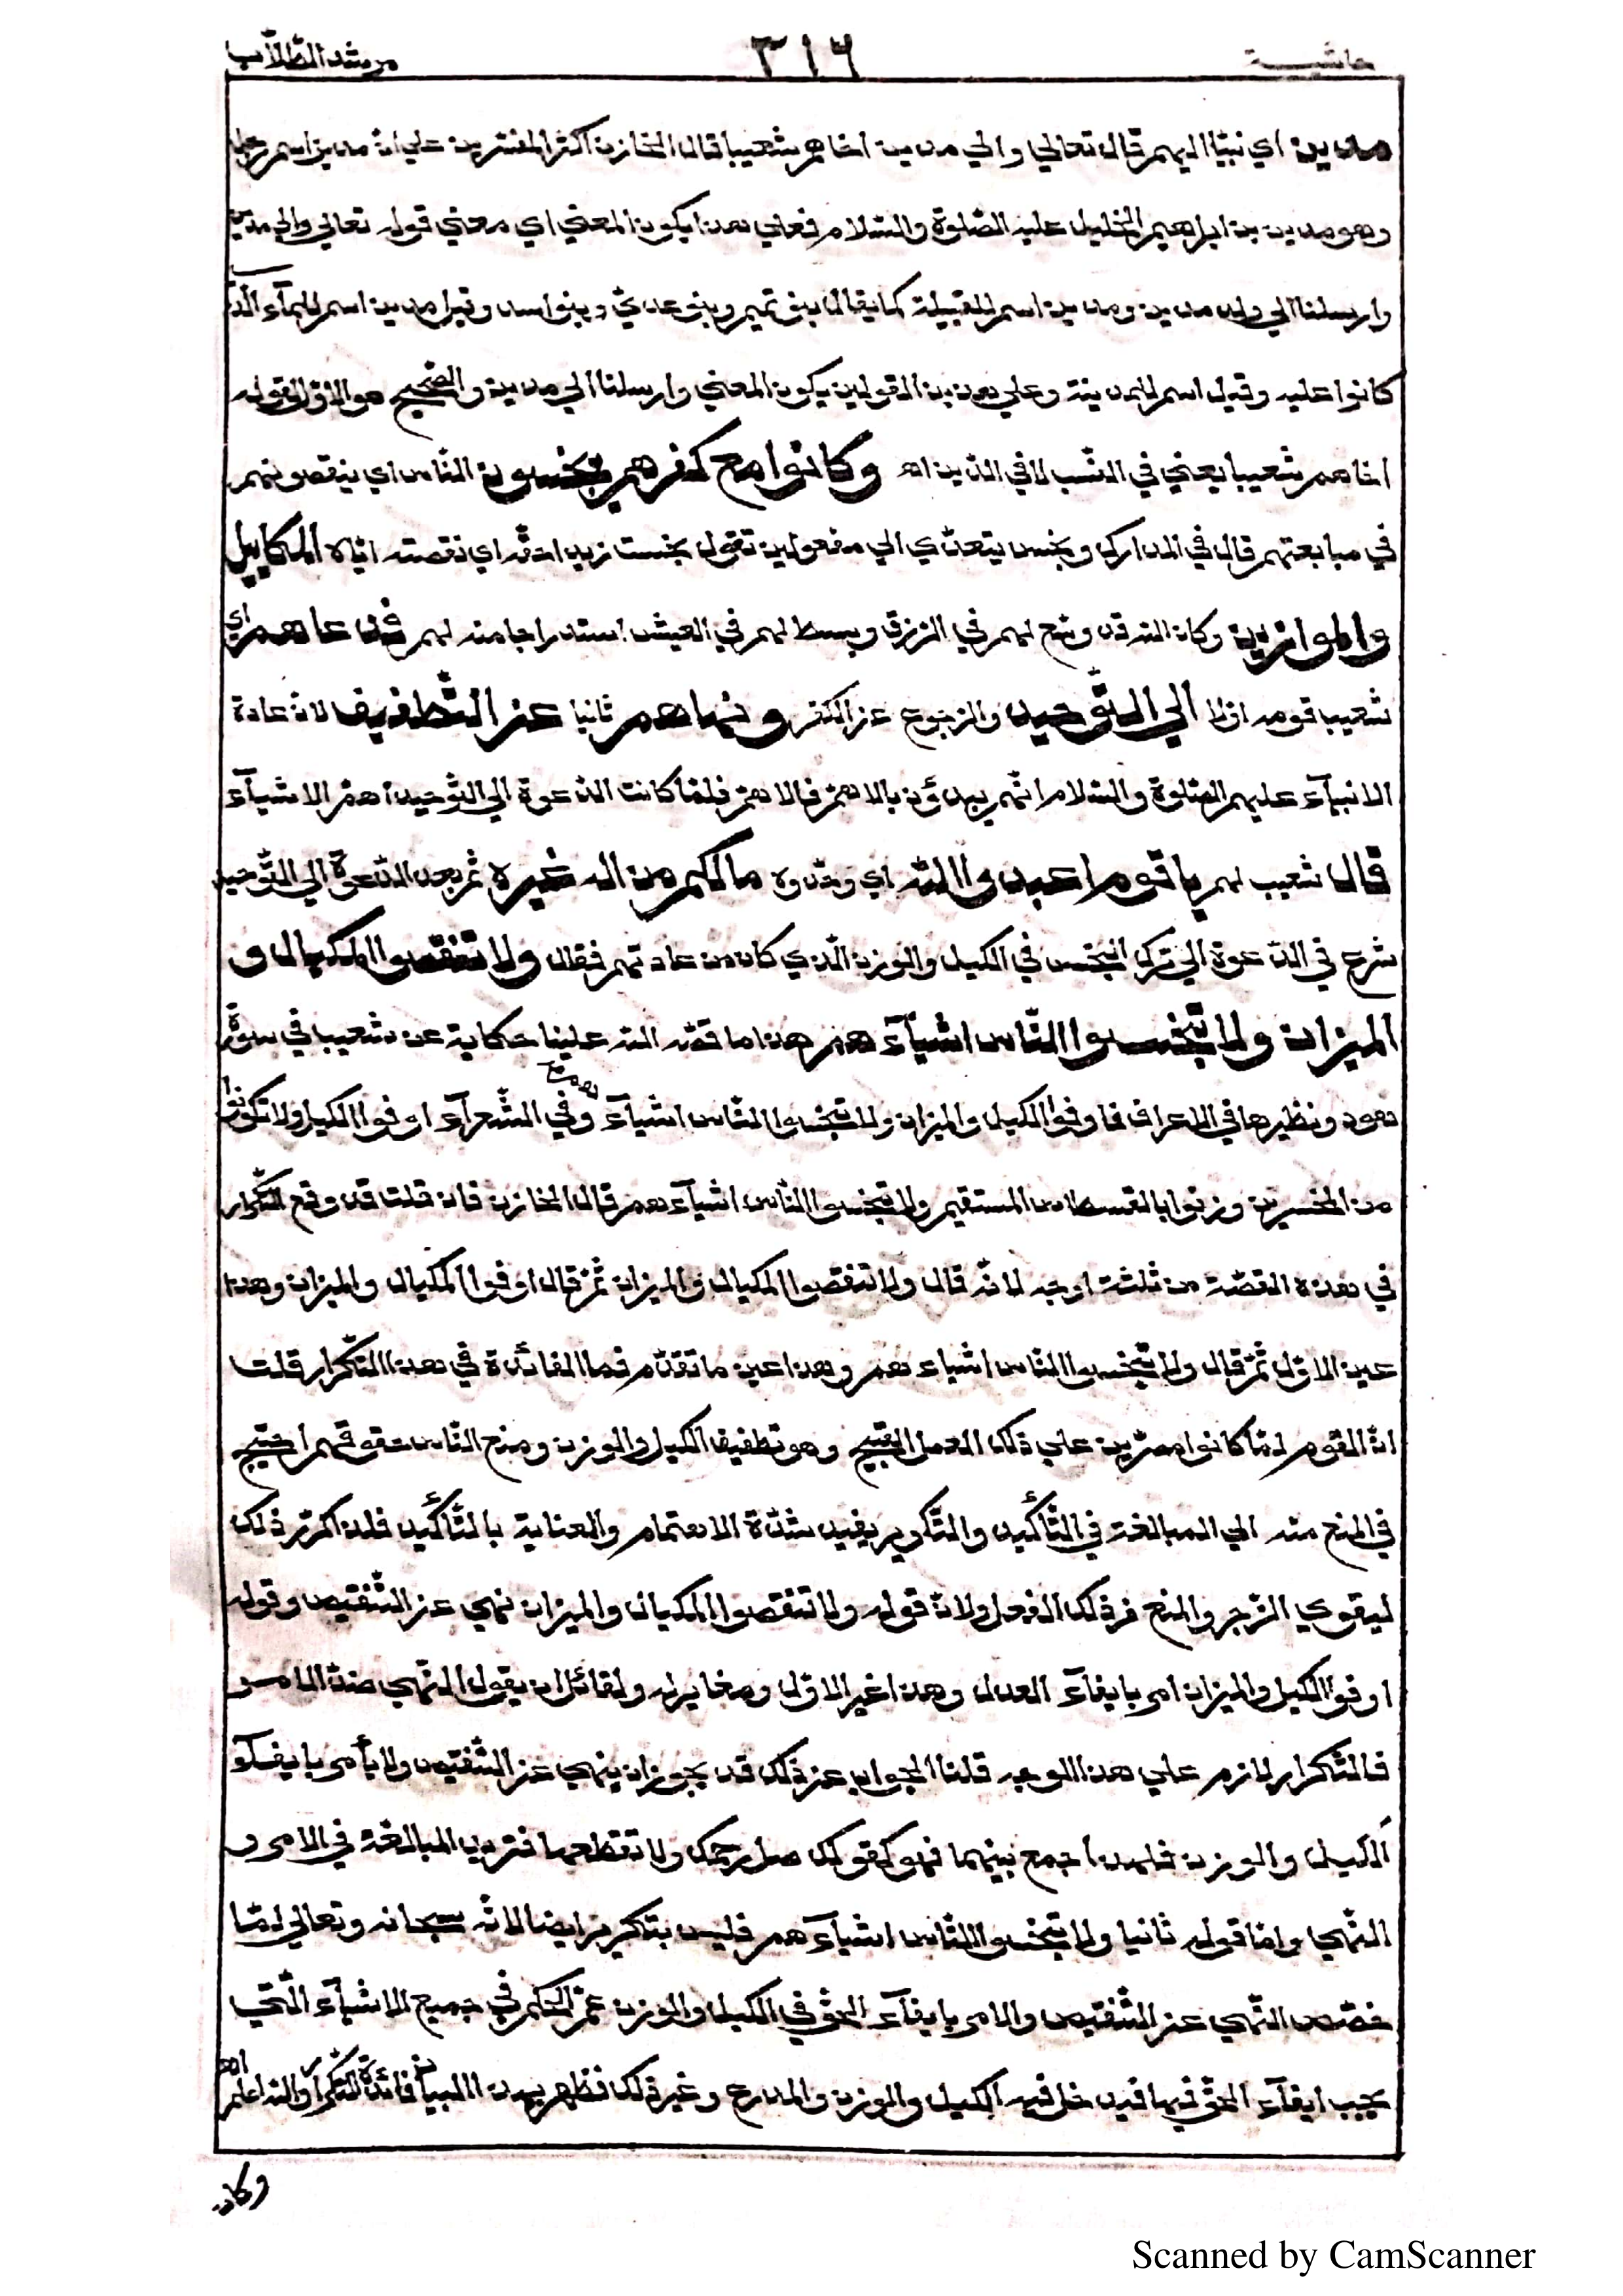 حاشية ٣١٦ مرشد الطلّاب
مدين اي نبيّا اليهم قال تعالي والي مدين اخاهم شعيبا قال الخازن اكثر المفسّرين علي انّ مدين اسم رجل
وهو مدين بن ابراهيم الخليل عليه الصّلوة والسّلام فعلي هذا يكون المعني اي معني قوله تعالي والي مدين
وارسلنا الي ولد مدين ومدين اسم للقبيلة كما يقال بنو تميم وبنو عديّ وبنو اسد وقيل مدين اسم للمآء الّذي
كانوا عليه وقيل اسم للمدينة وعلي هذين القولين يكون المعني وارسلنا الي مدين والصّحيح هو الاوّل لقوله
اخاهم شعيبا يعني في النّسب لا في الدّين اه وكانوا مع كفرهم يبخسون النّاس اي ينقصونهم
في مبايعتهم قال في المدارك وبخس يتعدّي الي مفعولين تقول بخست زيدا حقّه اي نقصته ايّاه المكاييل
والموازين وكان اللّه قد وسّع لهم في الرّزق وبسط لهم في العيش استدراجا منه لهم فدعاهم اي
شعيب قومه اوّلا الي التّوحيد والرّجوع عن الكفر ونهاهم ثانيا عن التّطفيف لانّ عادة
الانبيآء عليهم الصّلوة والسّلام انّهم يبدؤن بالاهمّ فالاهمّ فلمّا كانت الدّعوة الي التّوحيد اهمّ الاشيآء
قال شعيب لهم يا قوم اعبدوا اللّه اي وحّدوه مالكم من اله غيره ثمّ بعد الدّعوة الي التّوحيد
شرع في الدّعوة الي ترك البخس في الكيل والوزن الّذي كان من عادتهم فقال ولا تنقصوا المكيال و
الميزان ولا تبخسوا النّاس اشيآءهم هذا ما قصّه اللّه علينا حكاية عن شعيب في سورة
هود ونظيرها في الاعراف فاوفوا الكيل والميزان ولا تبخسوا النّاس اشيآءهم وفي الشّعرآء اوفوا الكيل ولا تكونوا
من المخسرين وزنوا بالقسطاس المستقيم ولا تبخسوا النّاس اشيآءهم قال الخازن فان قلت قد وقع التّكرار
في هذه القصّة من ثلثة اوجه لانّه قال ولا تنقصوا المكيال والميزان ثمّ قال اوفوا المكيال والميزان وهذا
عين الاوّل ثمّ قال ولا تبخسوا النّاس اشياءهم وهذا عين ما تقدّم فما الفائدة في هذا التّكرار قلت
انّ القوم لمّا كانوا مصرّين علي ذلك العمل القبيح وهو تطفيف الكيل والوزن ومنع النّاس حقوقهم احتيج
في المنع منه الي المبالغة في التّأكيد والتّكرير يفيد شدّة الاهتمام والعناية بالتّأكيد فلذا كرّر ذلك
ليقوي الزّجر والمنع من ذلك الفعل ولانّ قوله ولا تنقصوا المكيال والميزان نهي عن التّنقيص وقوله
اوفوا الكيل والميزان امر بايفآء العدل وهذا غير الاوّل ومغاير له ولقائل ان يقول النّهي ضدّ الامر
فالتّكرار لازم علي هذا الوجه قلنا الجواب عن ذلك قد يجوز ان ينهي عن التّنقيص ولا يأمر بايفآء
الكيل والوزن فلهذا جمع بينهما فهو كقولك صل رحمك ولا تقطعها فتريد المبالغة في الامر و
النّهي وامّا قوله ثانيا ولا تبخسوا النّاس اشيآءهم فليس بتكرير ايضا لانّه سبحانه وتعالي لمّا
خصّص النّهي عن التّنقيص والامر بايفآء الحقّ في الكيل والوزن عمّ الحكم في جميع الاشيآء الّتي
يجب ايفآء الحقّ فيها فيدخل فيه الكيل والوزن والذّرع وغير ذلك فظهر بهذا البيان فائدة التّكرار واللّه اعلم اه
وكان
Scanned by CamScanner